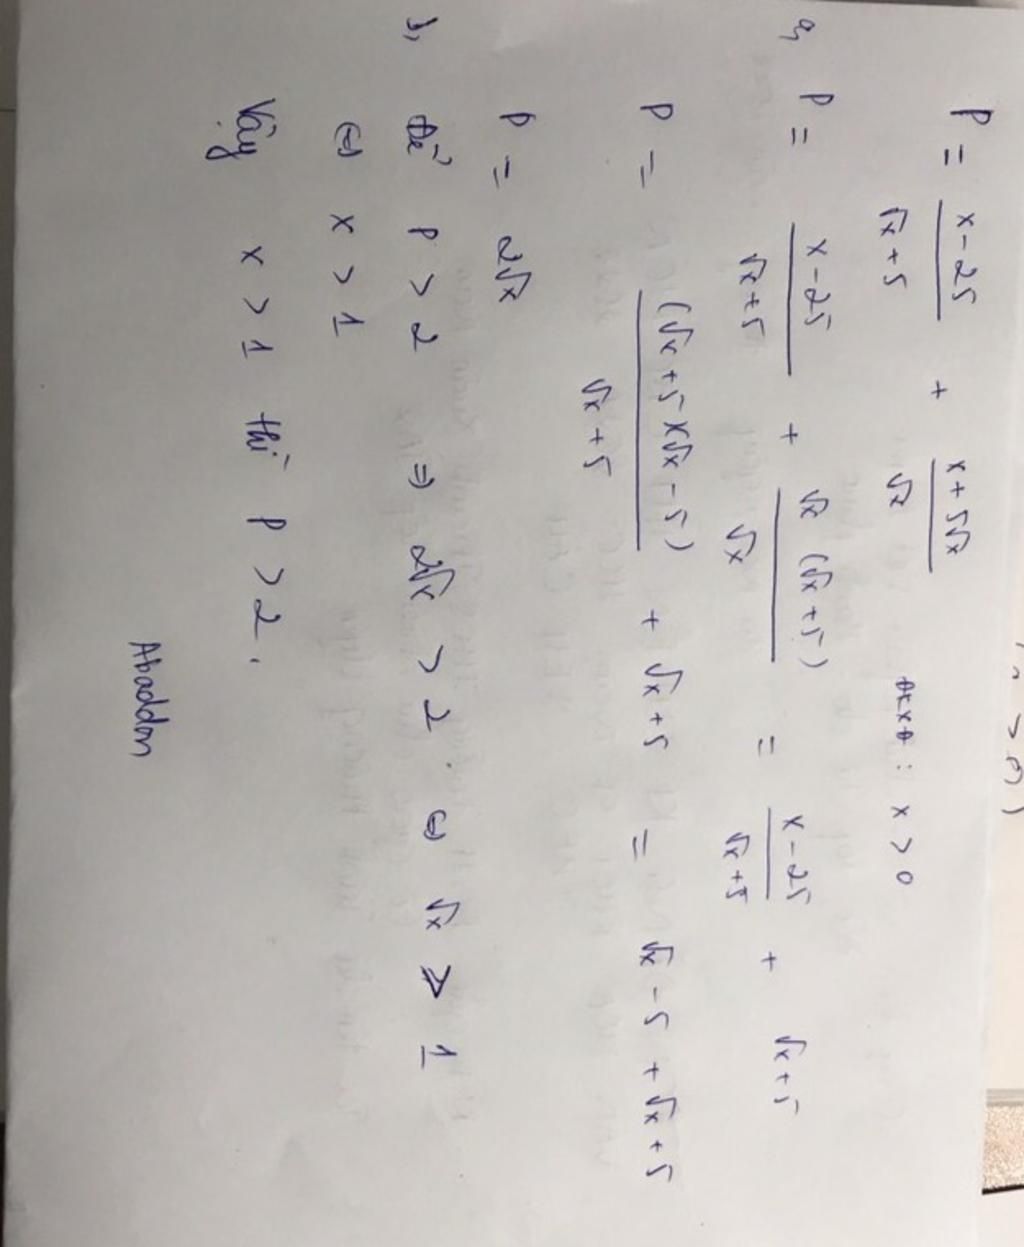 P = (x - 25)/(√x + 5) + (x + 5√x)/√x ĐKXĐ : x > 0
a, P = (x - 25)/(√x + 5) + √x (√x + 5)/√x = (x - 25)/(√x + 5) + √x + 5
P = (√x + 5)(√x - 5)/(√x + 5) + √x + 5 = √x - 5 + √x + 5
P = 2√x
b, Để P > 2 ⇒ 2√x > 2 . ⇔ √x > 1
⇔ x > 1
Vậy x > 1 thì P > 2 .
Abaddon